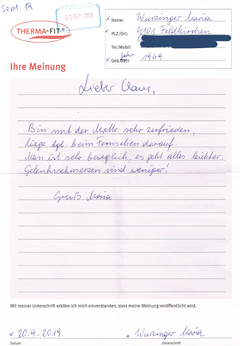 Sept. 19
23. SEP. 2019
THERMA-FIT
Name: Wurzinger Maria
PLZ/Ort: Feldkirchen
Tel/Mobil:
Jahr
Geb.Dat.: 1949
Ihre Meinung
Lieber Claus,
Bin mit der Matte sehr zufrieden,
liege tgl. beim fernsehen darauf
Man ist sehr beweglich, es geht alles leichter.
Gelenkschmerzen sind weniger!
Gruß Maria
Mit meiner Unterschrift erkläre ich mich einverstanden, dass meine Meinung veröffentlicht wird.
20.9.2019 Wurzinger Maria
Datum Unterschrift